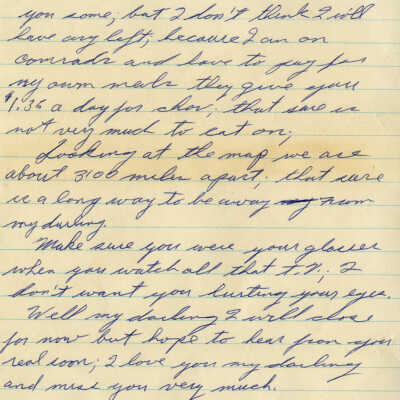 you some; but I don't think I will
have any left, because I am on
Comrads and have to pay for
my own meals they give you
$1.36 a day for chow; that sure is
not very much to eat on;
Looking at the map we are
about 3100 miles apart; that sure
is a long way to be away from
my darling.
Make sure you were your glasses
when you watch all that T.V.; I
don't want you hurting your eyes.
Well my darling I will close
for now but hope to hear from you
real soon; I love you my darling
and miss you very much.